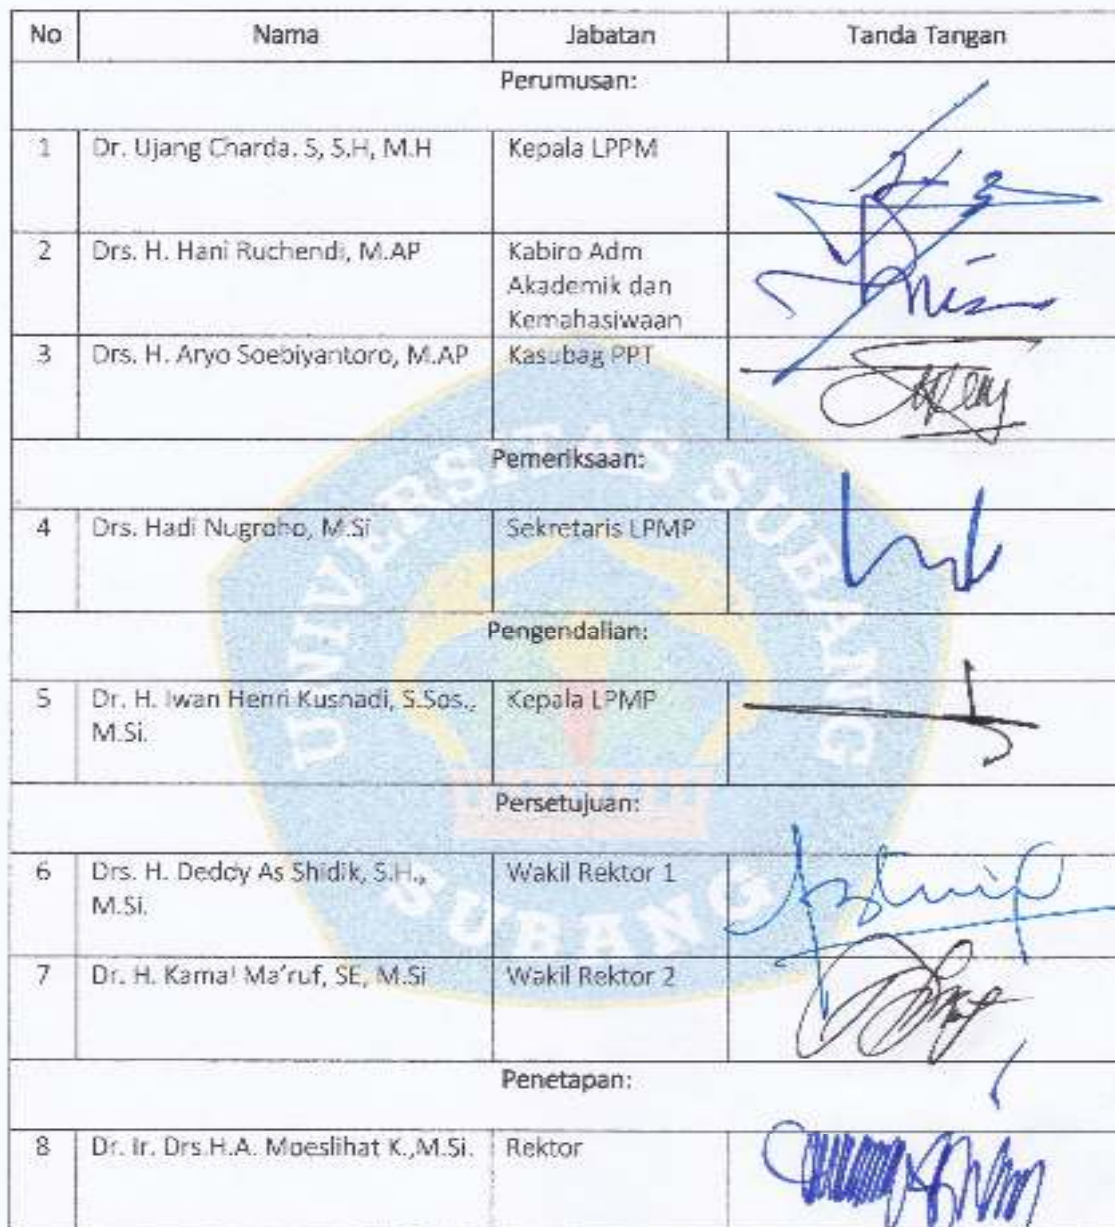 No Nama Jabatan Tanda Tangan
Perumusan:
1 Dr. Ujang Charda. S, S.H, M.H Kepala LPPM
2 Drs. H. Hani Ruchendi, M.AP Kabiro Adm
Akademik dan
Kemahasiwaan
3 Drs. H. Aryo Soebiyantoro, M.AP Kasubag PPT
Pemeriksaan:
4 Drs. Hadi Nugroho, M.Si Sekretaris LPMP
Pengendalian:
5 Dr. H. Iwan Henri Kusnadi, S.Sos., Kepala LPMP
M.Si.
Persetujuan:
6 Drs. H. Deddy As Shidik, S.H., Wakil Rektor 1
M.Si.
7 Dr. H. Kamal Ma'ruf, SE, M.Si Wakil Rektor 2
Penetapan:
8 Dr. Ir. Drs.H.A. Moeslihat K.,M.Si. Rektor
UNIVERSITAS SUBANG
SUBANG